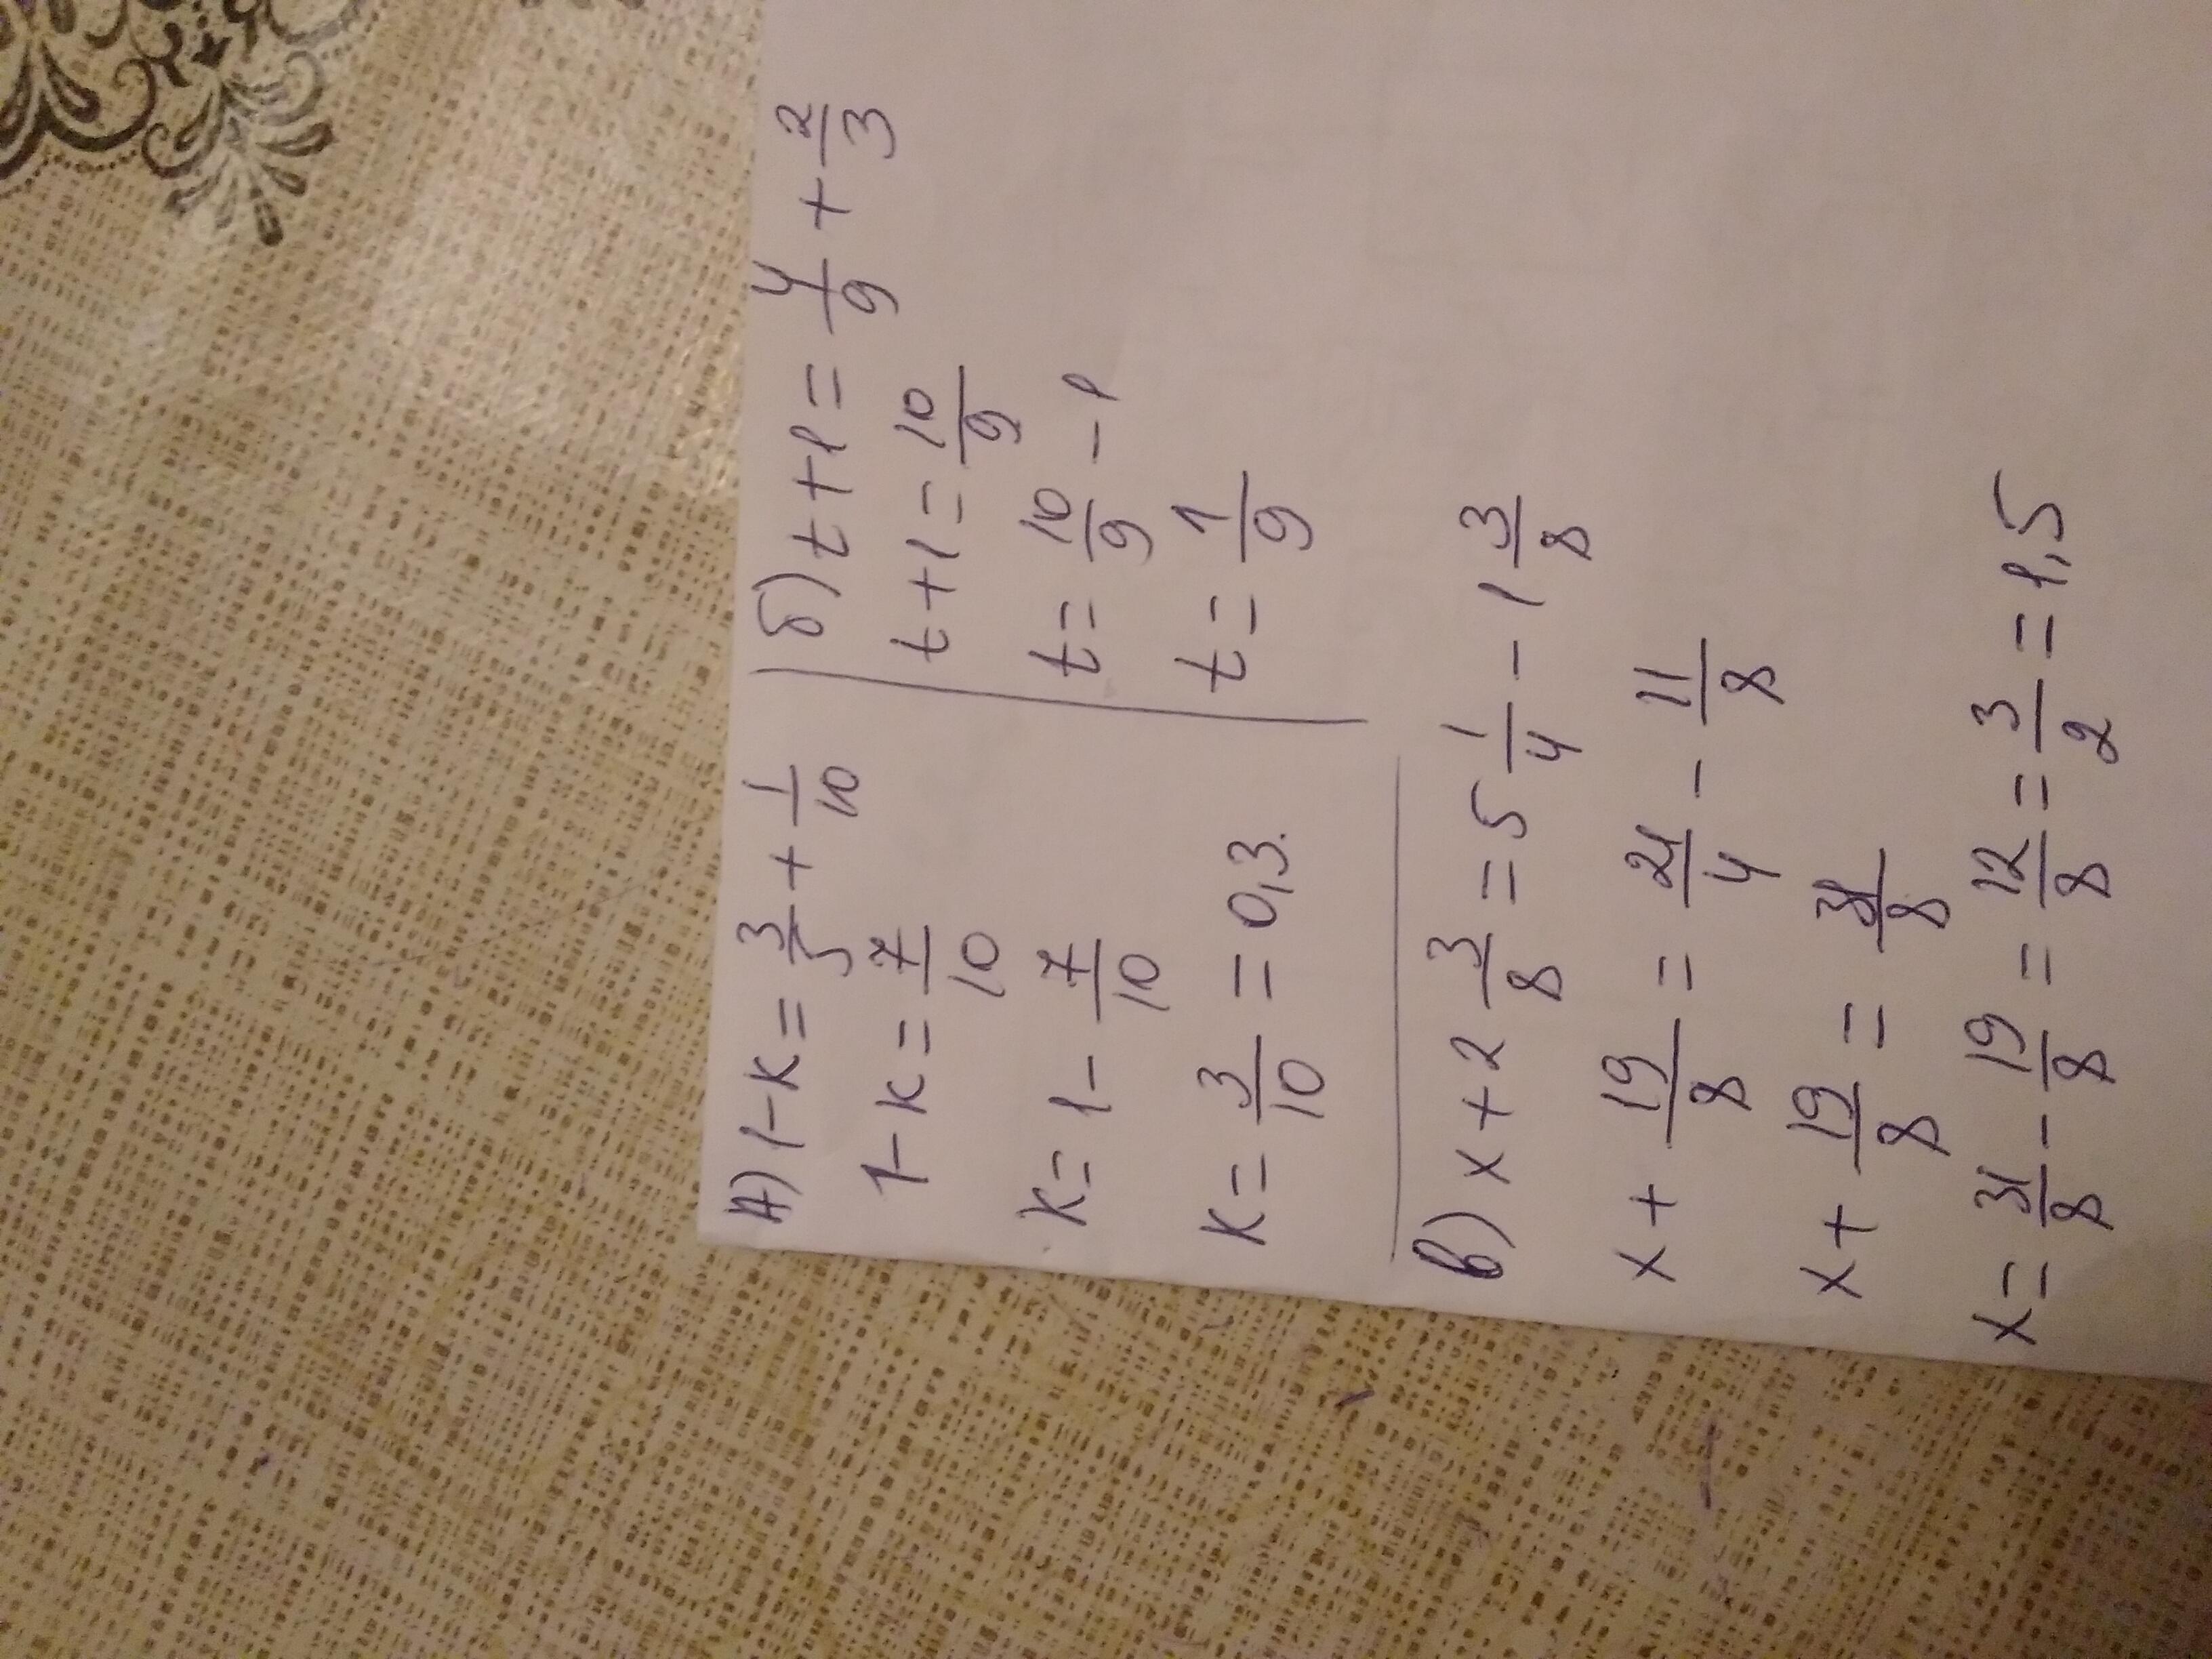 А) 1-к = 3/5 + 1/10
1-к = 7/10
к = 1 - 7/10
к = 3/10 = 0,3.
б) t+1 = 4/9 + 2/3
t+1 = 10/9
t = 10/9 - 1
t = 1/9
в) x + 2 3/8 = 5 1/4 - 1 3/8
x + 19/8 = 21/4 - 11/8
x + 19/8 = 31/8
x = 31/8 - 19/8 = 12/8 = 3/2 = 1,5